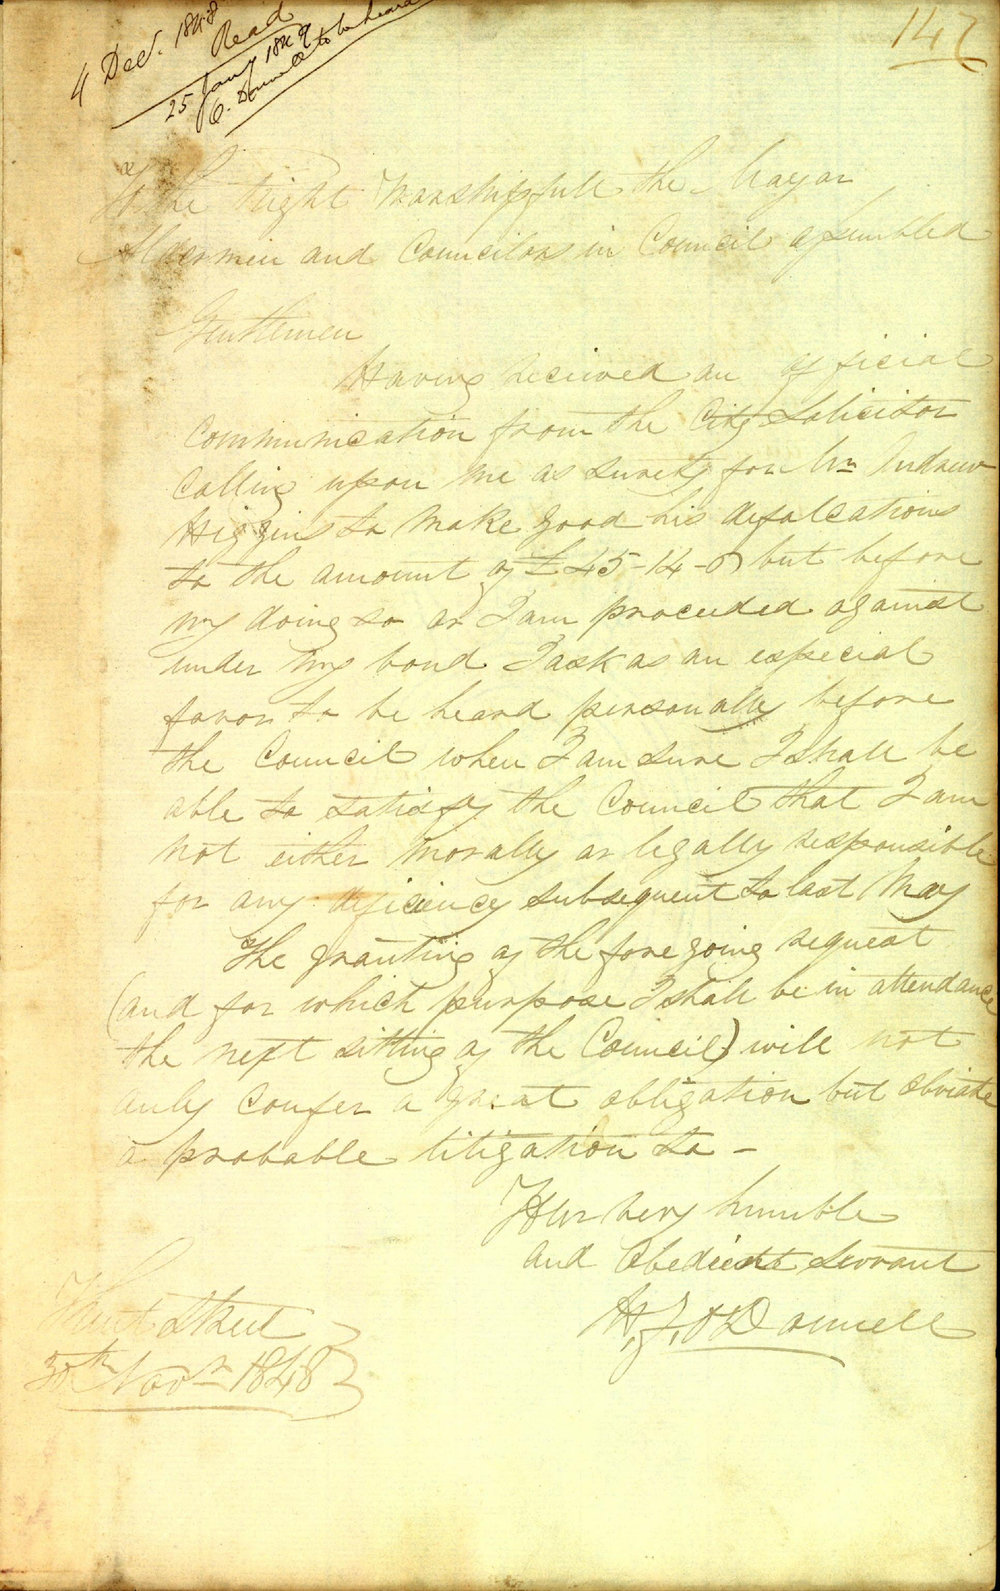 4 Decr. 1848
Read
25 Jany 1849
O'Donnell to be heard
147
To the Right Worshipfull the Mayor
Aldermen and Councilors in Council assembled
Gentlemen
Having received an official
Communication from the City Solicitor
Calling upon me as surety for Mr Andrew
Higgins to make good his defalcations
to the amount of £45-14-0 but before
my doing so or I am proceeded against
under my bond I ask as an especial
favor to be heard personally before
the Council when I am sure I shall be
able to satisfy the Council that I am
not either morally or legally responsible
for any deficiency subsequent to last May
The granting of the foregoing request
(and for which purpose I shall be in attendance
the next sitting of the Council) will not
only confer a great obligation but obviate
a probable litigation to -
Your very humble
and Obedient Servant
O'Donnell
Street
30th Novr 1848